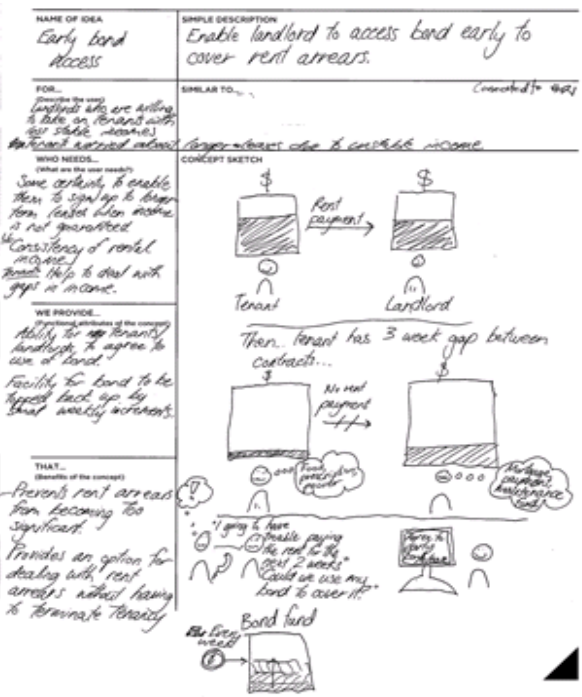 NAME OF IDEA
Early bond
access
SIMPLE DESCRIPTION
Enable landlord to access bond early to
cover rent arrears.
FOR...
(Describe the user)
Landlords who are willing
to take on tenants with
less stable incomes
Tenants worried about longer leases due to unstable income
SIMILAR TO...
Connected to
WHO NEEDS...
(What are the user needs?)
Some certainty to enable
them to sign up to longer
term leases when income
is not guaranteed
Consistency of rental
income
Tenant: Help to deal with
gaps in income.
WE PROVIDE...
(Functional attributes of the concept)
Ability for tenants/
landlords to agree to
use of bond.
Facility for bond to be
topped back up by
small weekly increments.
THAT...
(Benefits of the concept)
Prevents rent arrears
from becoming too
significant.
Provides an option for
dealing with rent
arrears without having
to terminate tenancy
CONCEPT SKETCH
$
Rent
payment
$
Tenant
Landlord
Then... tenant has 3 week gap between
contracts...
$
No rent
payment
$
Food,
prescription,
power
Mortgage
payment,
maintenance
!
"I going to have
trouble paying
the rent for the
next 2 weeks"
Could we use my
bond to cover it?"
Agree to
early
bond
Bond fund
Every
week
$